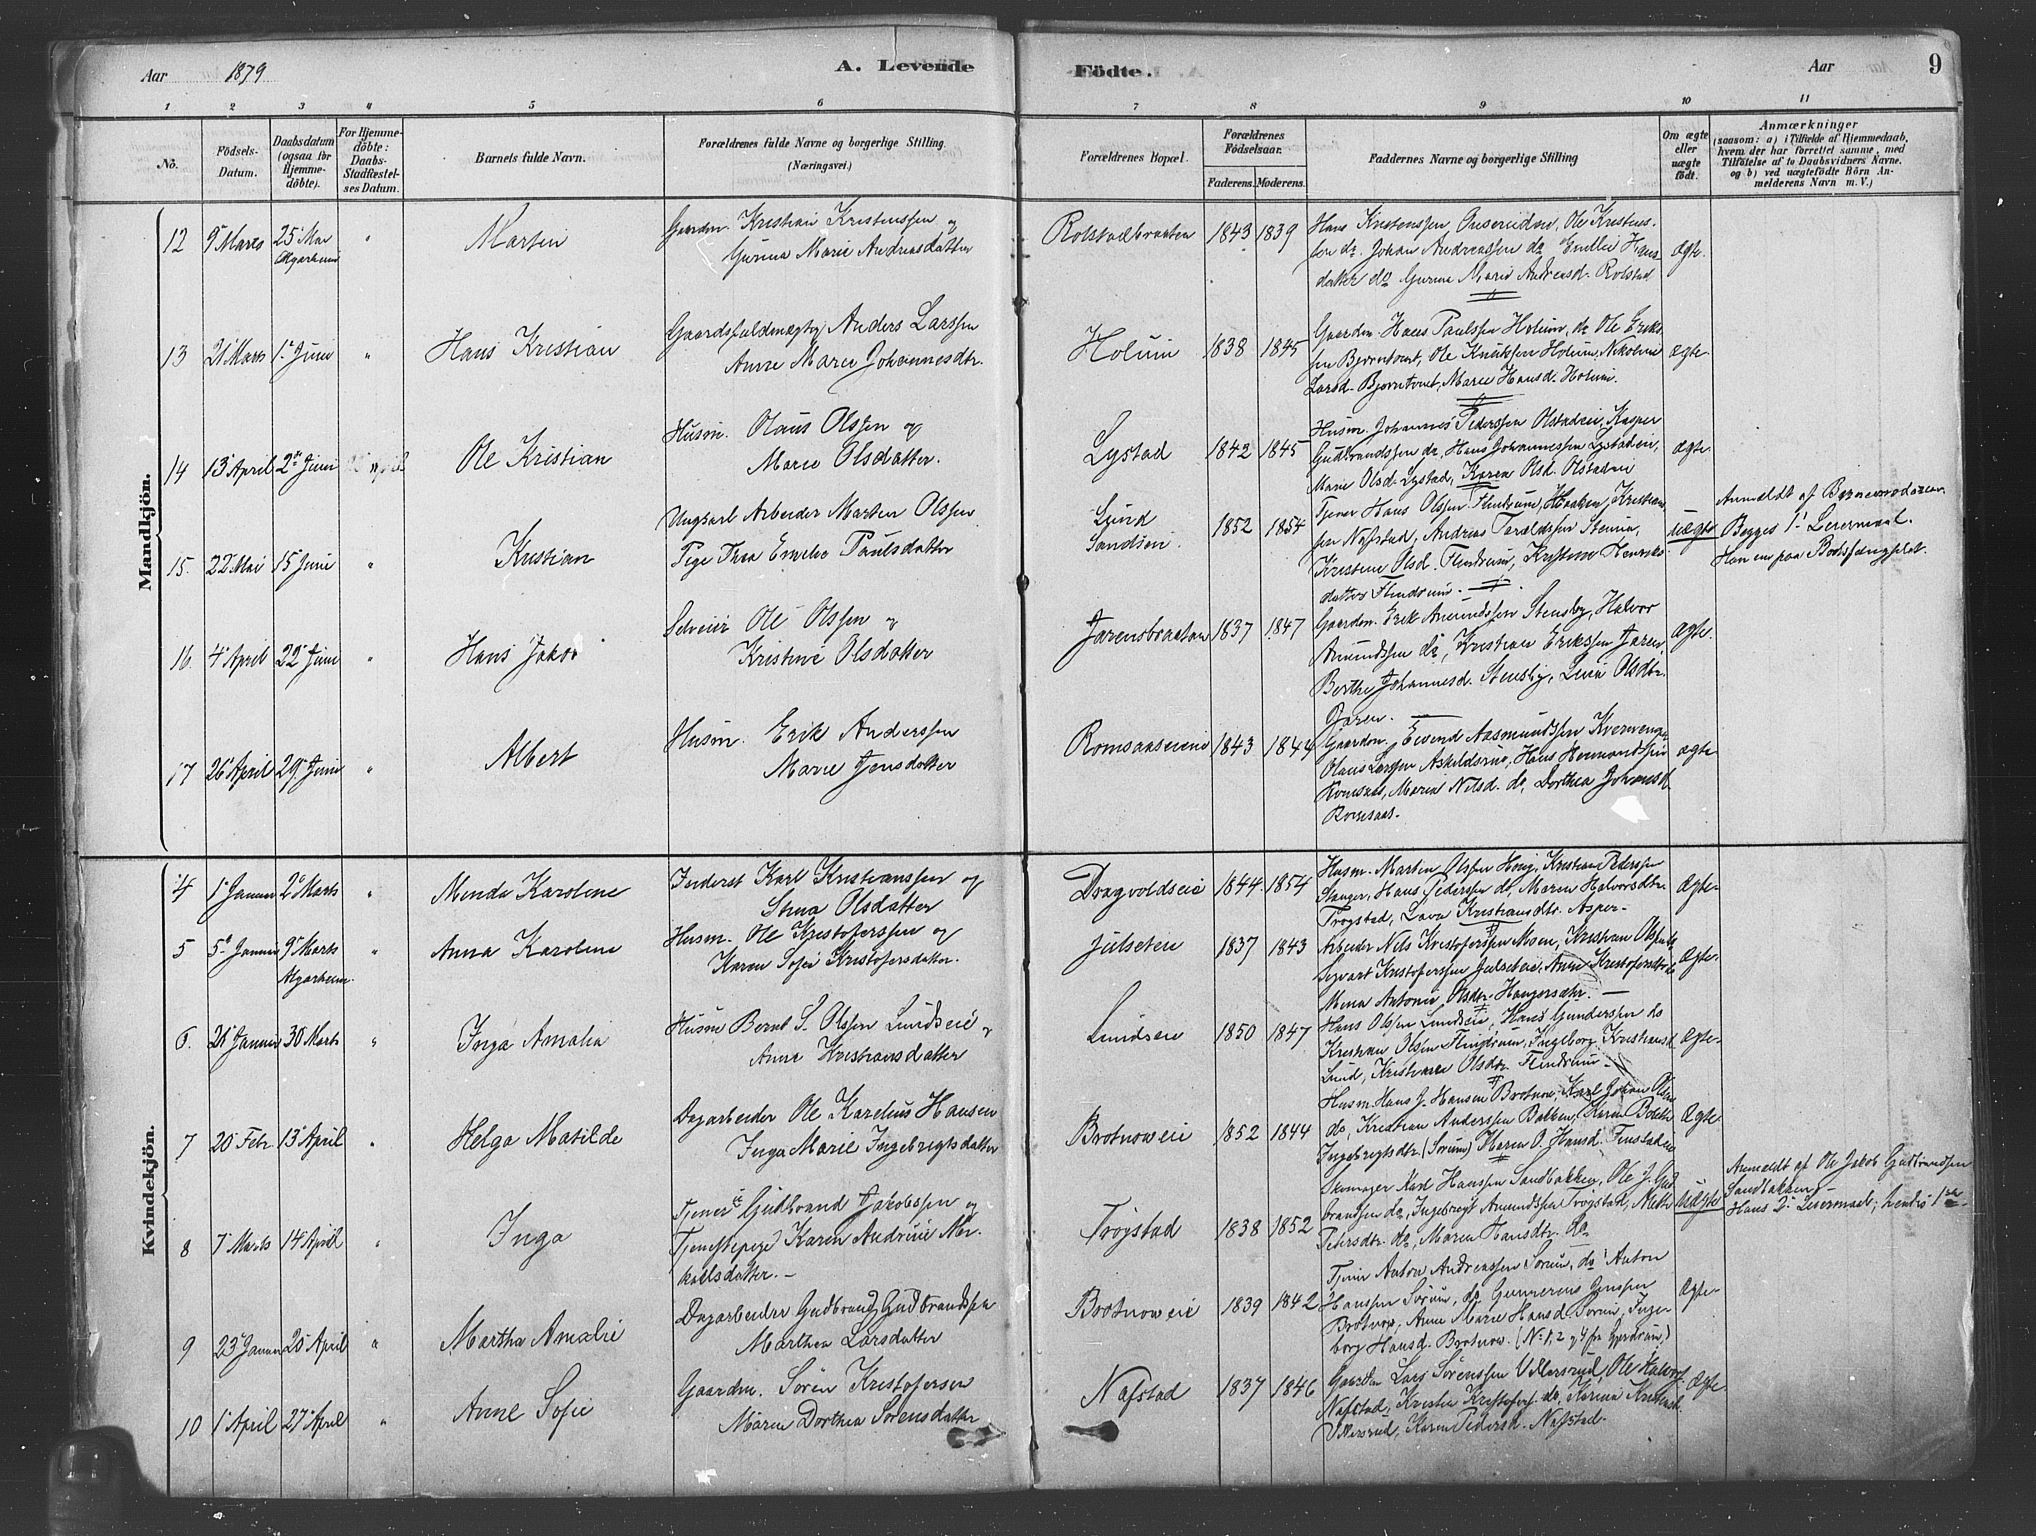 Aar 1879
A. Levende
Födte.
Aar
9
1 2 3 4 5 6 7 8 9 10 11
No.
Födsels-
Datum.
Daabsdatum
(ogsaa for
Hjemme-
döbte).
For Hjemme-
döbte:
Daabs-
Stadfæstel-
ses Datum.
Barnets fulde Navn.
Forældrenes fulde Navne og borgerlige Stilling.
(Næringsvei.)
Forældrenes Bopæl.
Forældrenes
Födselsaar.
Faderens. Moderens.
Faddernes Navne og borgerlige Stilling
Om ægte
eller
uægte
födt.
Anmærkninger
(saasom: a) i Tilfælde af Hjemmedaab,
hvem der har forrettet samme, med
Tilföielse af to Daabsvidners Navne,
og b) ved uægtefödte Börn An-
melderens Navn m. V.)
Mandkjön.
12 9 Marts 25 Mai " Martin
Gaardm. Kristian Kristenssen og
Gunna Marie Andreasdatter
Rolstadbraaten 1843 1839
Hans Kristenssen, Ole Kristens-
sen do Johan Andreassen do Emilie Hans-
datter do Gunna Marie Andreasd. Rolstad
ægte.
13 21 Marts 1 Juni " Hans Kristian
Anders Larssen
Anne Marie Johannesdtr.
Holum 1838 1845
Gaardm. Hans Paulssen Holum, do Ole Eriks-
sen Bjørntvet, Ole Holum, Nikoline
Larsd. Bjørntvet, Marie Hansd. Holum.
ægte.
14 13 April 2 Juni Ole Kristian
Husm. Olaus Olssen og
Marie Olsdatter.
Lystad 1842 1845
Husm. Johannes Pederssen Olstadeie, Kasper
Gudbrandssen do, Hans Johannessen Lystadeie,
Marie Olsd. Lystad, Karen Olsd. Olstadeie
ægte.
15. 22 Mai 15 Juni " Kristian
Ungkarl Arbeider Martin Olssen
Pige Thea Emilie Paulsdatter
Lund
Sandseie. 1852 1854
Tjener Hans Olssen Flindrum, Haaken Kristians-
sen Nafstad, Andreas Taraldssen Stenna,
Kristine Olsd. Flindrum, Henriks-
datter Flindrum.
uægte
Anmeldt af Barnemoderen.
Begges 1. Leiermaal.
Han er paa Bodsfængslet.
16. 4 April 22 Juni " Hans Jakob
Selveier Ole Olssen og
Kristine Olsdatter
Jarensbraaten 1837 1847
Gaardm. Erik Amundssen Stensby, Halvor
Amundssen do, Kristian Erikssen Jaren,
Berthe Johannesd. Stensby, Lina Olsdtr.
Jaren.
Ægte.
17 26 April 29 Juni " Albert
Husm. Erik Anderssen
Marie Jensdatter
Romsaaseie 1843 1844
Gaardm. Eivend Aasmundssen Kverneng,
Olaus Larssen Askildsrud, Hans Hermandssen
Romsaas, Maria Nilsd. do, Dorthea Johansd.
Romsaas.
ægte
Kvindekjön.
4 1 Januar 2 Marts " Menda Karoline
Inderst Karl Kristianssen og
Stina Olsdatter
Dragvoldseie 1844 1854
Husm. Martin Olssen Haug, Kristian Pederssen
Stanger, Hans Pederssen do, Maren Halvorsdtr.
Trøgstad, Lava Kristiansdtr. Asper.
Ægte.
5 5 Januar 9 Marts " Anna Karoline
Husm. Ole Kristoferssen og
Karen Sofie Kristofersdatter.
Julseteie 1837 1843
Arbeider Nils Kristoferssen Moen, Kristian
Sigvart Kristoferssen Julseteie, Anne Kristofersdtr do
Mina Antonie Olsdtr.
Ægte.
6. 21 Januar 30 Marts " Inga Amalia
Husm Bernt S. Olssen Lundseie og
Anne Kristiansdatter
Lundseie 1850 1847
Hans Olssen Lundseie, Hans Gunderssen do
Kristian Olsen Flindrum, Ingeborg Kristiansd.
Lund, Kristiane Olsdtr Flindrum
Ægte.
7 20 Febr. 13 April " Helga Matilde
Dagarbeider Ole Karelius Hansen
Inga Marie Ingebrigtsdatter
Brotnoweie 1852 1844
Husm. Hans J. Hansen Brotnow, Karl Johan Olsen
do, Kristian Anderssen Bakken, Karen Bolette
Ingebrigtsdtr (Sørum) Maren O. Hansd. Finstadeie
Ægte.
8 7 Marts 14 April " Inga
Tjener Gudbrand Jakobssen og
Tjenestepige Karen Andrine Mi-
kalsdatter.
Trøgstad 1838 1852
Skomager Karl Hanssen Sandbakken, Ole J. Gud-
brandsen do, Ingebrigt Amundssen Trøgstad,
Pedersdtr. do, Maren Hansdtr. do
uægte
Anmeldt af Ole Jakob Gudbrandsen
Sandbakken.
Hans 2 Leiermaal, hendes 1ste.
9 23 Januar 20 April " Martha Amalie
Dagarbeider Gudbrand Gudbrandssen
Marthea Larsdatter
Brotnoweie 1839 1842
Tjener Anton Andreassen Sørum, do Anton
Hanssen Sørum, do Gunnerius Jenssen
Brotnow, Anne Marie Hansd. Sørum, Inge-
borg Hansd. Brotnow. (No 1, 2 og 4 fra Gjerdrum.)
Ægte.
10 1 April 27 April " Anne Sofie
Gaardm. Søren Kristofersen
Maren Dorthea Sørensdatter
Nafstad 1837 1846
Gaardm Lars Sørenssen Ullersrud, Ole Halvors.
Nafstad, Kristen Kristofers. do, Karina
Ullersrud, Karen Pedersd. Nafstad.
Ægte